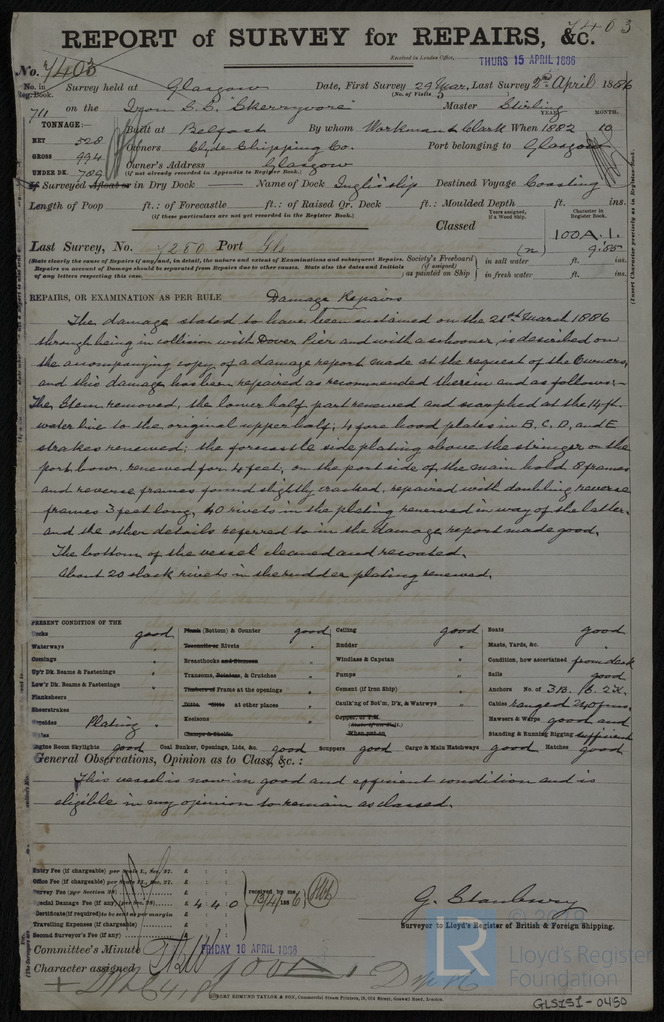 7403
REPORT of SURVEY for REPAIRS, &c.
Received in London Office, THURS 15 APRIL 1886
No. 7403
No. in Reg. Book. Survey held at Glasgow Date, First Survey 29 Mar, Last Survey 2nd April 1886
(No. of Visits 5
711 on the Iron S.S. "Skerryvore" Master Stirling
TONNAGE: Built at Belfast By whom Workman & Clark When 1882 YEAR. 10 MONTH.
NET 528 Owners Clyde Shipping Co. Port belonging to Glasgow
GROSS 994 Owner's Address Glasgow
UNDER DK. 789 (if not already recorded in Appendix to Register Book.)
If Surveyed Afloat or in Dry Dock Name of Dock Inglis' slip Destined Voyage Coasting
Length of Poop ft.: of Forecastle ft.: of Raised Qr. Deck ft.: Moulded Depth ft. ins.
(if these particulars are not yet recorded in the Register Book.)
Years assigned, if a Wood Ship. Character in Register Book.
Classed 100A.1.
Last Survey, No. 7250 Port Gls 9.85
(State clearly the cause of Repairs if any and, in detail, the nature and extent of Examinations and subsequent Repairs. Repairs on account of Damage should be separated from Repairs due to other causes. State also the dates and Initials of any letters respecting this case.
Society's Freeboard (if assigned) as painted on Ship in salt water ft. ins.
in fresh water ft. ins.
(Insert Character precisely as in Register Book.)
REPAIRS, OR EXAMINATION AS PER RULE Damage Repairs
The damage stated to have been sustained on the 21st March 1886
through being in collision with Dover Pier and with a schooner, is described on
the accompanying copy of a damage report made at the request of the Owners,
and this damage has been repaired as recommended therein and as follows:-
The Stem removed, the lower half part renewed and scarphed at the 14 ft.
water line to the original upper half; 4 fore hood plates in B. C. D, and E
strakes renewed; the forecastle side plating above the stringer on the
port bow. renewed for 4 feet, on the port side of the main hold 8 frames
and reverse frames found slightly cracked, repaired with doubling reverse
frames 3 feet long, 40 rivets in the plating renewed in way of the latter.
and the other details referred to in the damage report made good.
The bottom of the vessel cleaned and recoated.
About 20 slack rivets in the rudder plating renewed.
PRESENT CONDITION OF THE
Decks good
Waterways "
Comings "
Up'r Dk. Beams & Fastenings "
Low'r Dk. Beams & Fastenings "
Planksheers
Sheerstrakes
Topsides Plating "
Wales
Plank (Bottom) & Counter good
Treenails or Rivets "
Breasthooks and Pointers "
Transoms, Pointers, & Crutches "
Timbers or Frame at the openings "
Ditto Ditto at other places "
Keelsons "
Clamps & Shelfs.
Ceiling good
Rudder "
Windlass & Capstan "
Pumps "
Cement (if Iron Ship) "
Caulk'ng of Bot'm, D'k, & Watrwys "
Copper, or Y.M.
When put on
Boats good
Masts, Yards, &c. "
Condition, how ascertained from deck
Sails good
Anchors No. of 3 B. 1 S. 2 K.
Cables ranged 240 fms.
Hawsers & Warps good and
Standing & Running Rigging sufficient
Engine Room Skylights good Coal Bunker, Openings, Lids, &c. good Scuppers good Cargo & Main Hatchways good Hatches good
General Observations, Opinion as to Class, &c. :
This vessel is now in good and efficient condition and is
eligible in my opinion to remain as classed.
Entry Fee (if chargeable) per Scale I., Sec. 27.
Office Fee (if chargeable) per Scale II., Sec. 27.
Survey Fee (per Section 28)
Special Damage Fee (if any) (per Sec. 28) £ 4 : 4 : 0
received by me, 13/4/1886
Certificate (if required) to be sent as per margin
Travelling Expenses (if chargeable)
Second Surveyor's Fee (if any)
G. Stanbury
Surveyor to Lloyd's Register of British & Foreign Shipping.
Committee's Minute FRIDAY 16 APRIL 1886
Character assigned 100A1
LR
© 2019
Lloyd's Register
Foundation
GLS151-0450